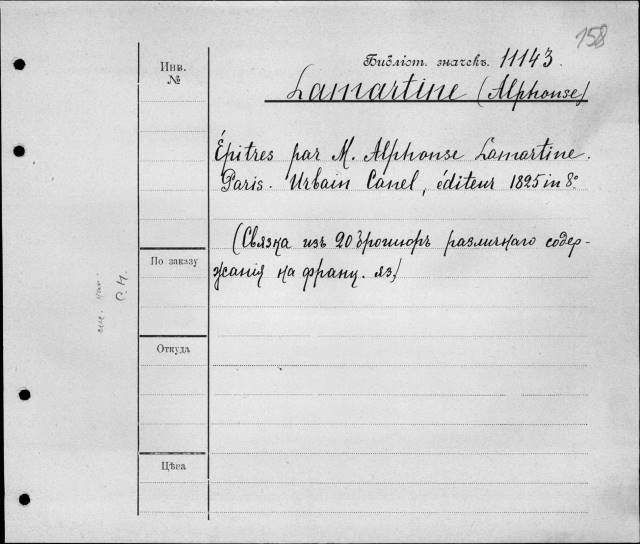 158
Инв.
№
Библіот. значекъ. 11143.
Lamartine (Alphonse)
Épitres par M. Alphonse Lamartine.
Paris. Urbain Canel, éditeur 1825 in 8°
(Связка изъ 20 брошюръ различнаго содер-
жанія на франц. яз.)
По заказу
Откуда
Цѣна